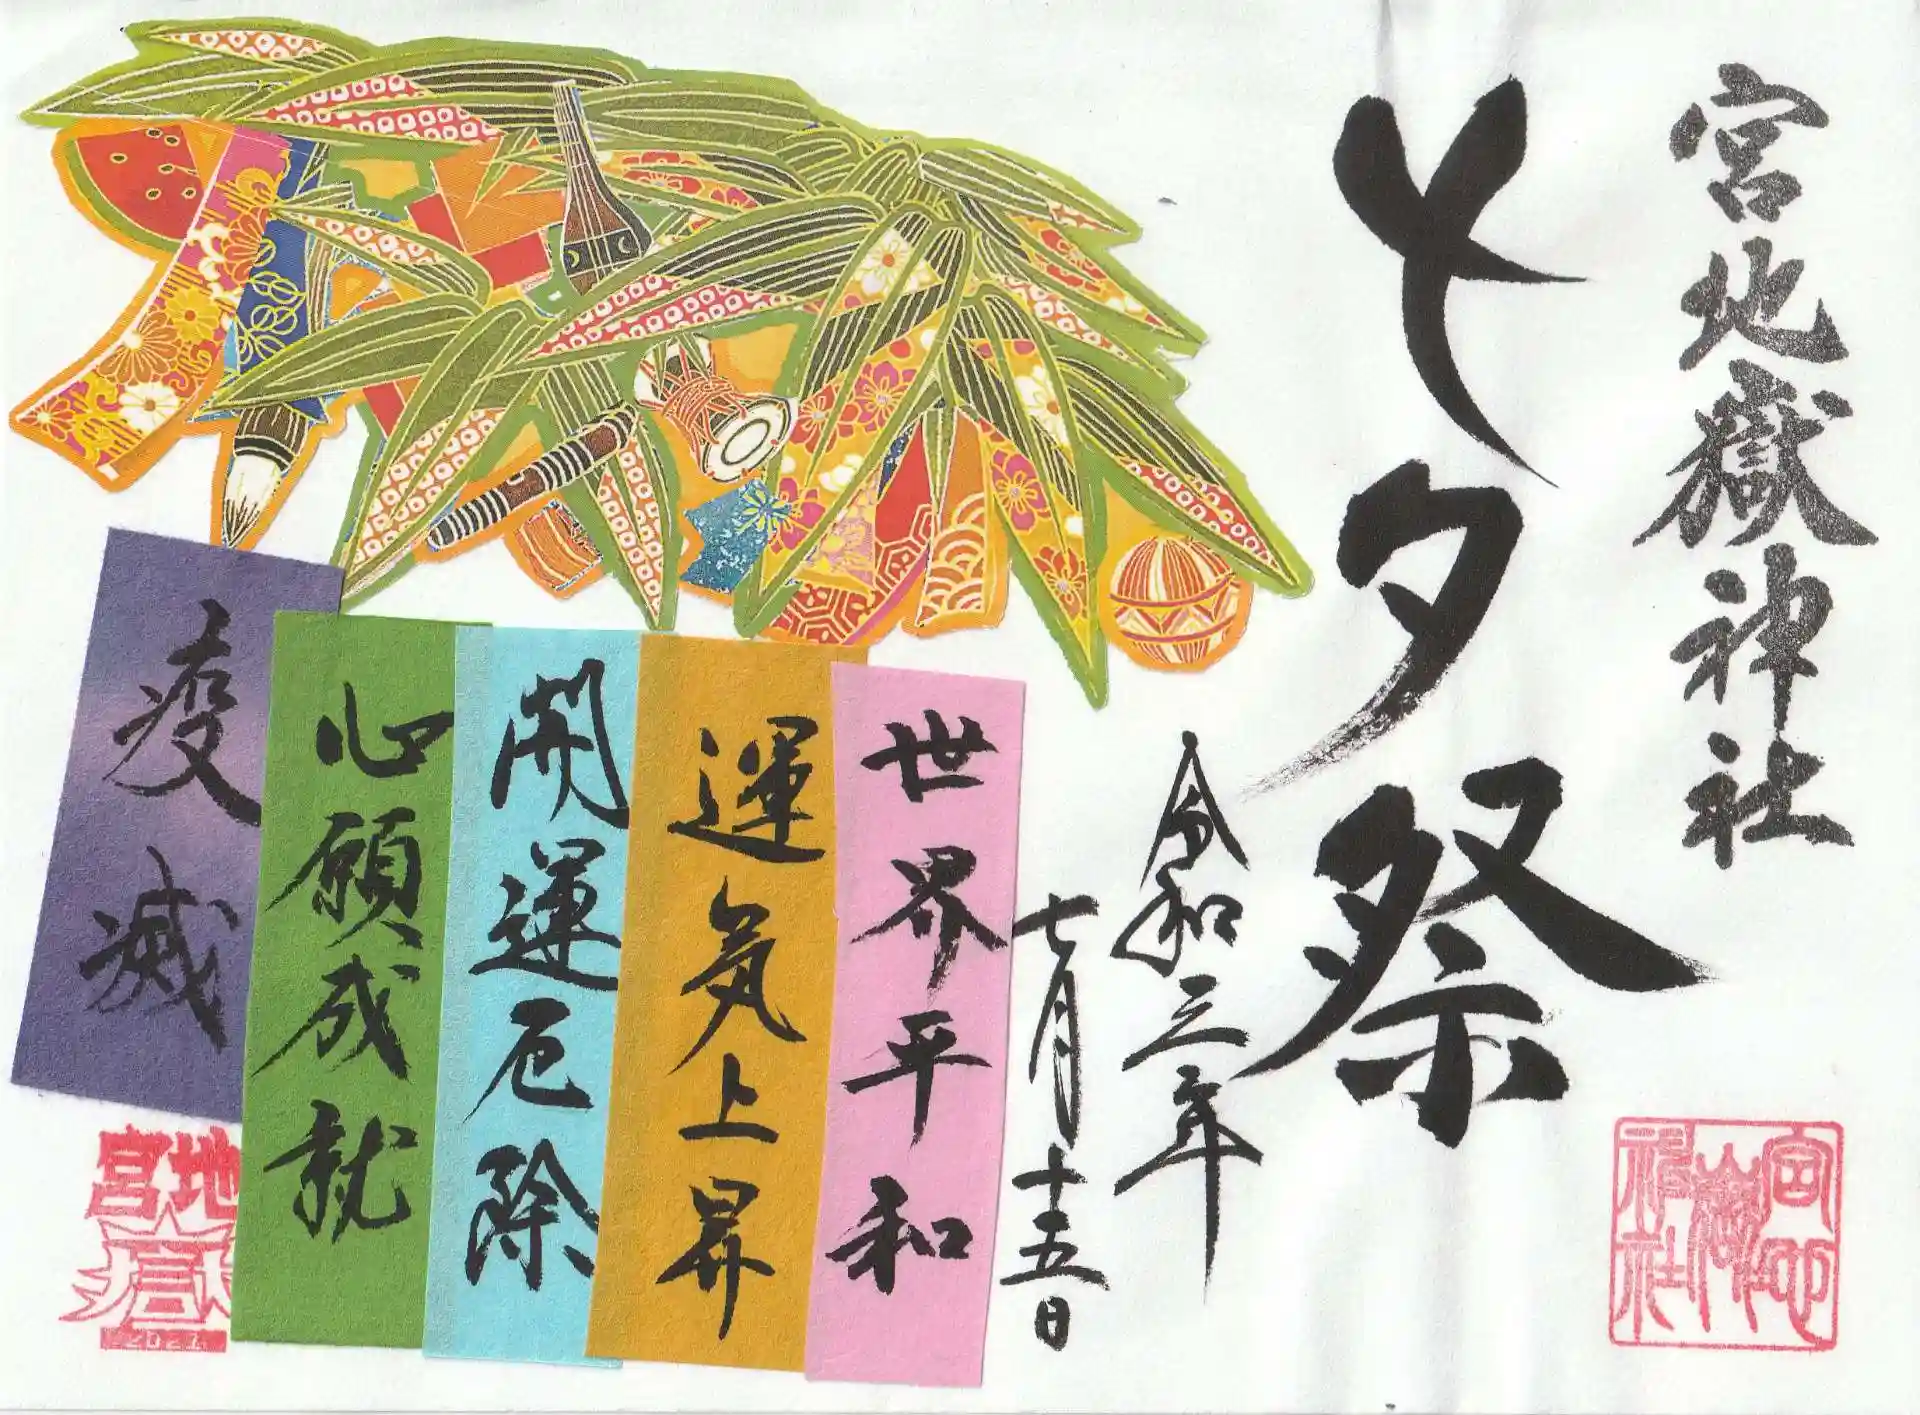 宮地嶽神社
七夕祭
令和三年
七月十五日
世界平和
運気上昇
開運厄除
心願成就
疫滅
宮地嶽神社
宮地
嶽
2021